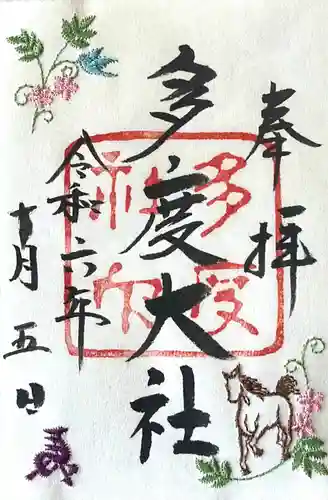 奉拝
多度大社
令和六年
十月五日
多度
神社